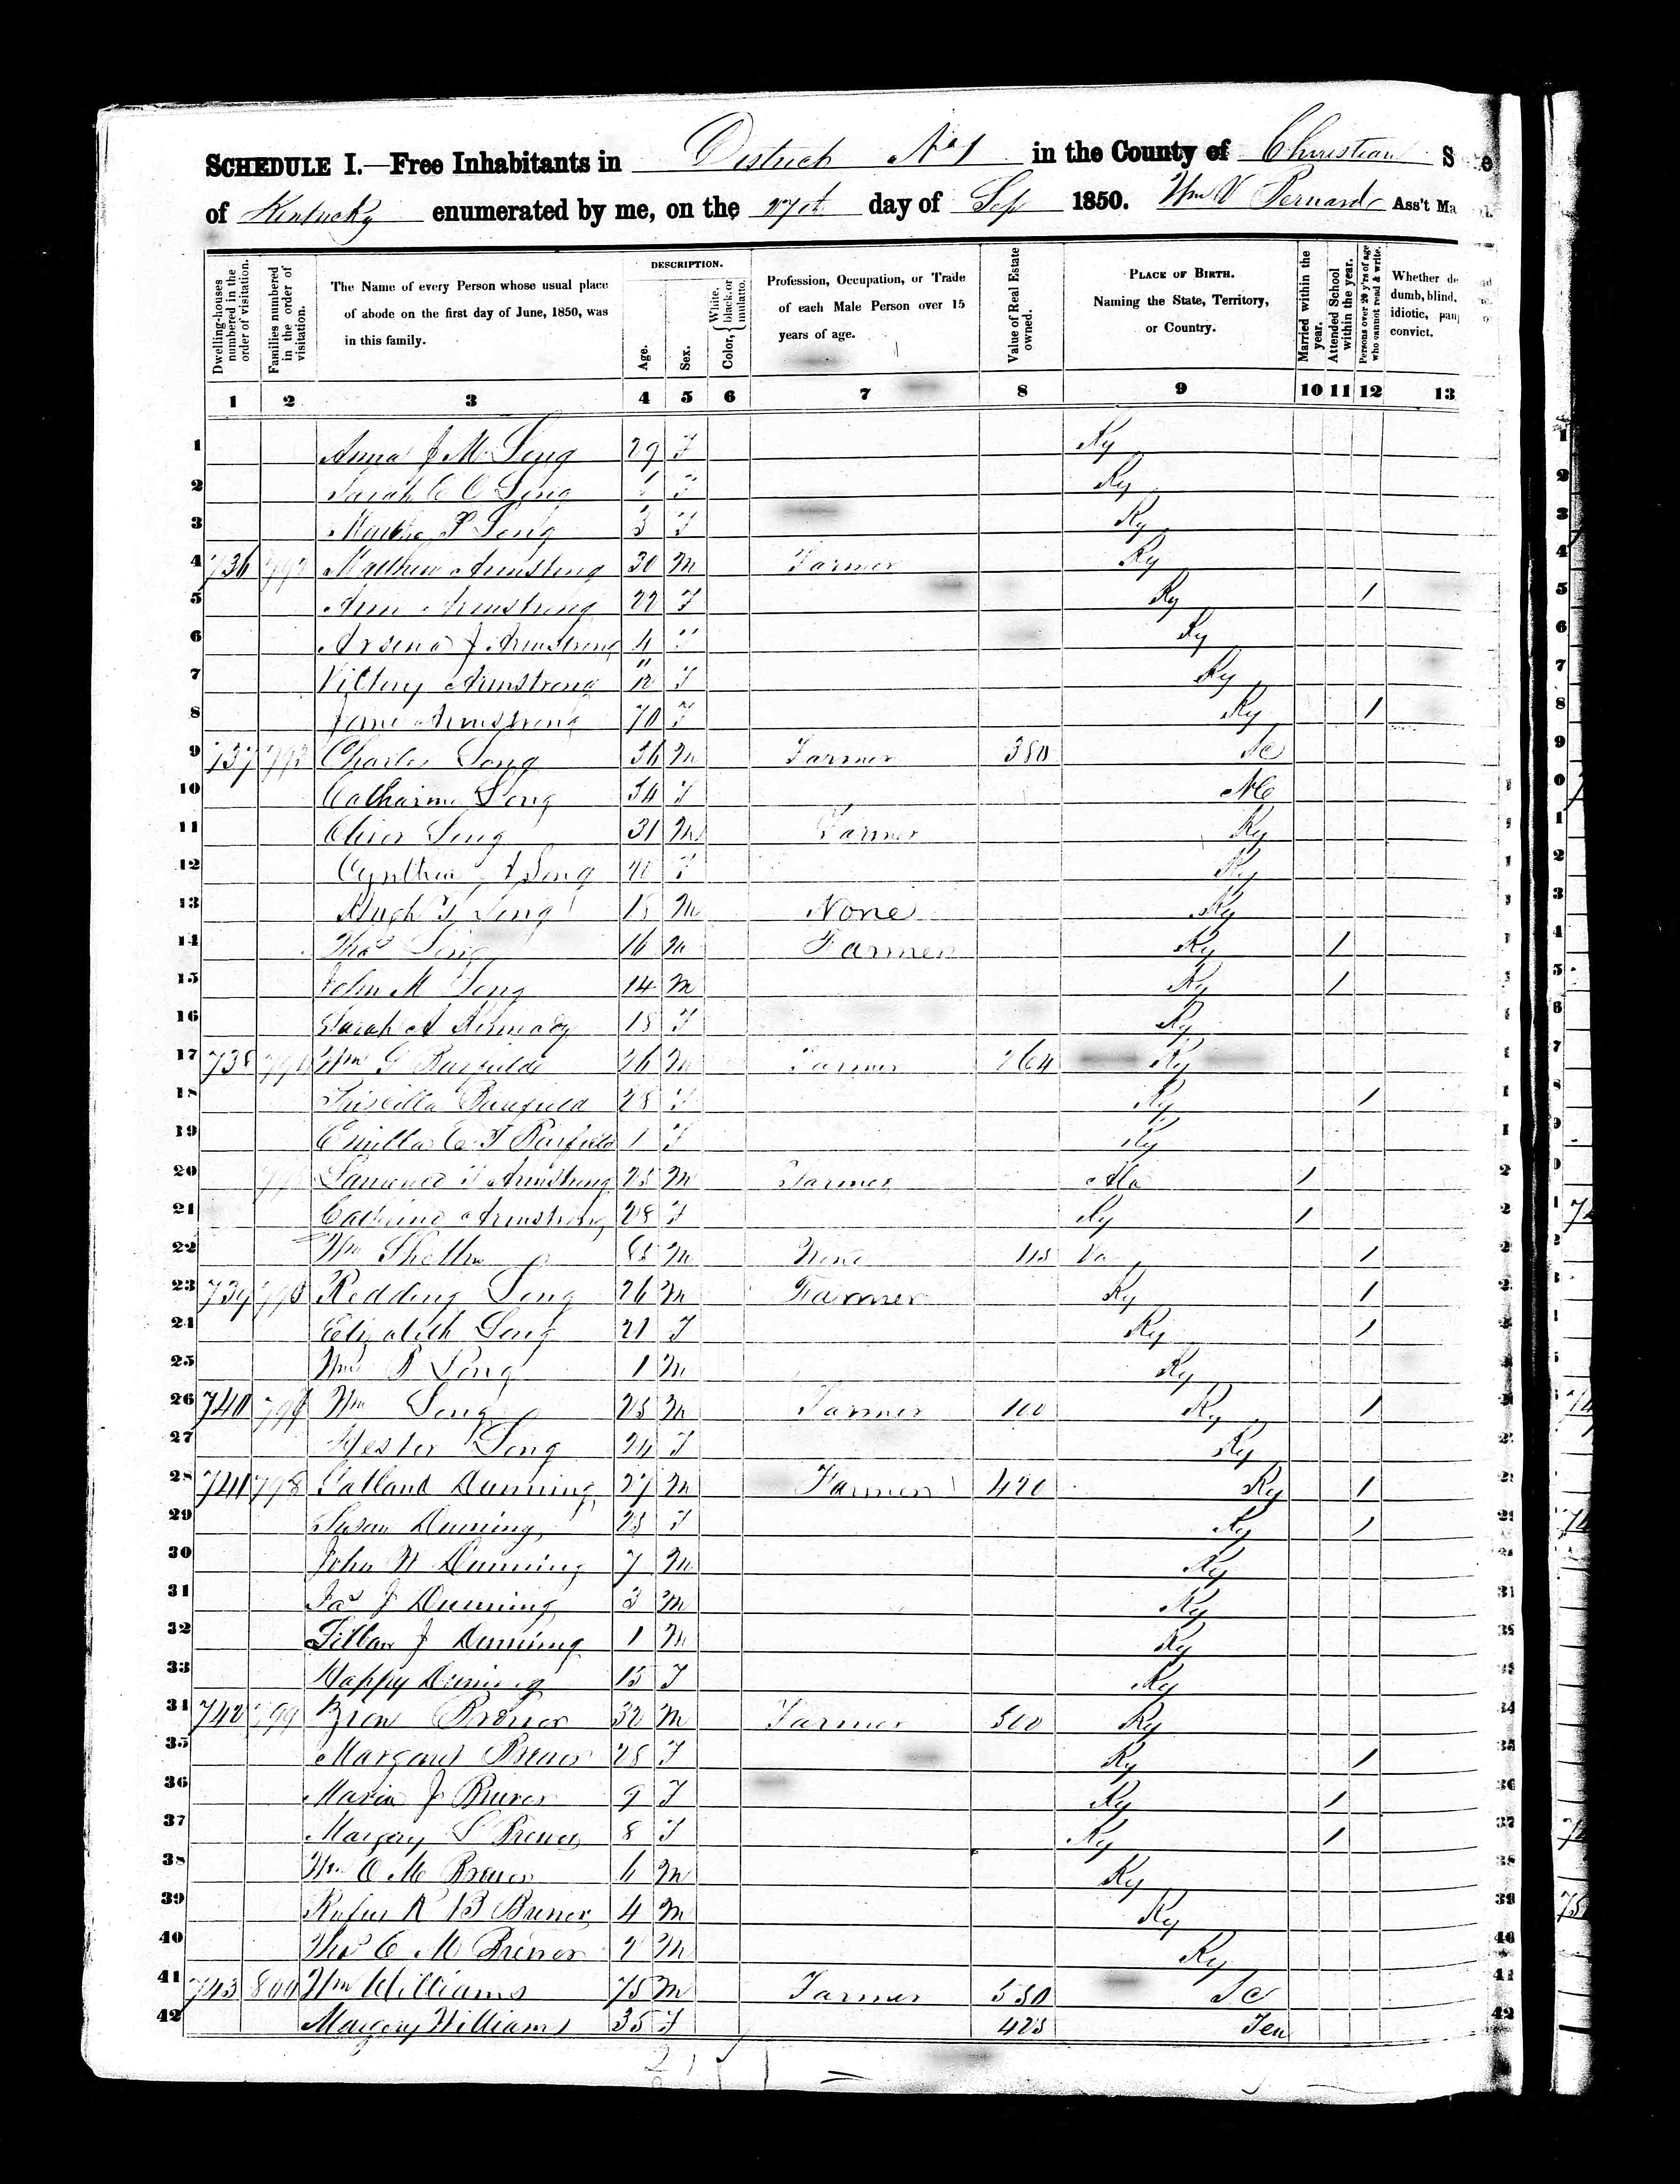 SCHEDULE I.—Free Inhabitants in District No 1 in the County of Christian S e
of Kentucky enumerated by me, on the 27th day of Sep 1850. Wm V Bernard Ass't Ma
DESCRIPTION.
Dwelling-houses numbered in the order of visitation.
Families numbered in the order of visitation.
The Name of every Person whose usual place of abode on the first day of June, 1850, was in this family.
Age.
Sex.
Color, { White, black, or mulatto.
Profession, Occupation, or Trade of each Male Person over 15 years of age.
Value of Real Estate owned.
PLACE OF BIRTH. Naming the State, Territory, or Country.
Married within the year.
Attended School within the year.
Persons over 20 y'rs of age who cannot read & write.
Whether de dumb, blind, idiotic, pau convict.
1 2 3 4 5 6 7 8 9 10 11 12 13
1 Anna J M Long 29 F Ky
2 Sarah E C Long F Ky
3 Martha P Long 3 F Ky
4 736 792 Mathew Armstrong 30 M Farmer Ky
5 Ann Armstrong 22 F Ky 1
6 Arsena J Armstrong 4 " Ky
7 Victory Armstrong 12 F Ky
8 Jane Armstrong 70 F Ky 1
9 737 793 Charles Long 56 M Farmer 380 Sc
10 Catharine Long 54 F NC
11 Oliver Long 31 M Farmer Ky
12 Cynthia A Long 20 F Ky
13 Hugh Long 18 M None Ky
14 Thos Long 16 M Farmer Ky 1
15 John M Long 14 M Ky 1
16 Sarah A Kennady 18 F Ky
17 738 794 Wm G Barfield 26 M Farmer 264 Ky
18 Priscilla Barfield 28 F Ky 1
19 C F Barfield 1 F Ky
20 795 Armstrong 25 M Farmer Ala 1
21 Catherine Armstrong 28 F Ky 1
22 Wm 85 M None Va 1
23 739 796 Redding Long 26 M Farmer Ky 1
24 Elizabeth Long 21 F Ky 1
25 Wm R Long 1 M Ky
26 740 797 Wm Long 25 M Farmer 100 Ky 1
27 Hester Long 24 F Ky
28 741 798 Dunning 27 M Farmer 420 Ky 1
29 Susan Dunning 25 F Ky 1
30 John W Dunning 7 M Ky
31 Jas J Dunning 3 M Ky
32 J Dunning 1 M Ky
33 Happy Dunning 15 F Ky
34 742 799 Brewer 32 M Farmer 500 Ky
35 Margaret Brewer 28 F Ky 1
36 Maria J Brewer 9 F Ky 1
37 Margery S Brewer 8 F Ky 1
38 Wm O M Brewer 6 M Ky
39 Rufus R B Brewer 4 M Ky
40 Thos C M Brewer 2 M Ky
41 743 800 Wm Williams 75 M Farmer 550 Sc
42 Margery Williams 35 F 425 Ten